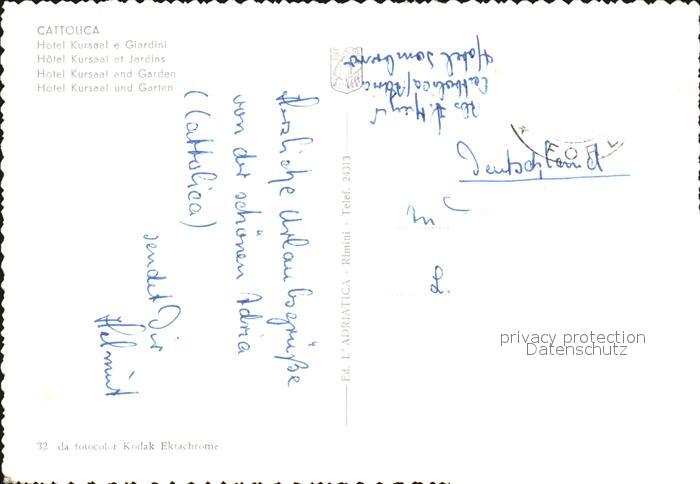 CATTOLICA
Hotel Kursaal e Giardini
Hôtel Kursaal et Jardins
Hotel Kursaal and Garden
Hotel Kursaal und Garten
Herzliche Urlaubsgrüße
von der schönen Adria
(Cattolica)
sendet Dir
Helmut
Ed. L'ADRIATICA - Rimini - Telef. 24313
Cattolica/Adria
Hotel
Deutschland
privacy protection
Datenschutz
32 da fotocolor Kodak Ektachrome